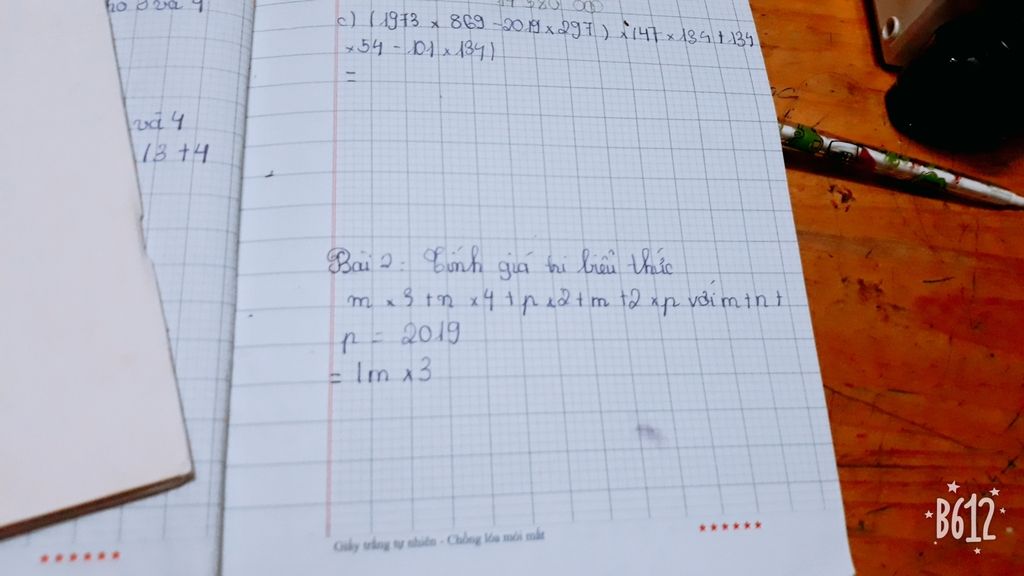 và 4
13 + 4
c) (1973 x 869 - 2019 x 297) x (47 x 134 + 134
x 54 - 101 x 134)
=
Bài 2: Tính giá trị biểu thức
m x 3 + n x 4 + p x 2 + m + 2 x p với m + n +
p = 2019
= 1m x 3
Giấy trắng tự nhiên - Chống lóa mỏi mắt
B612